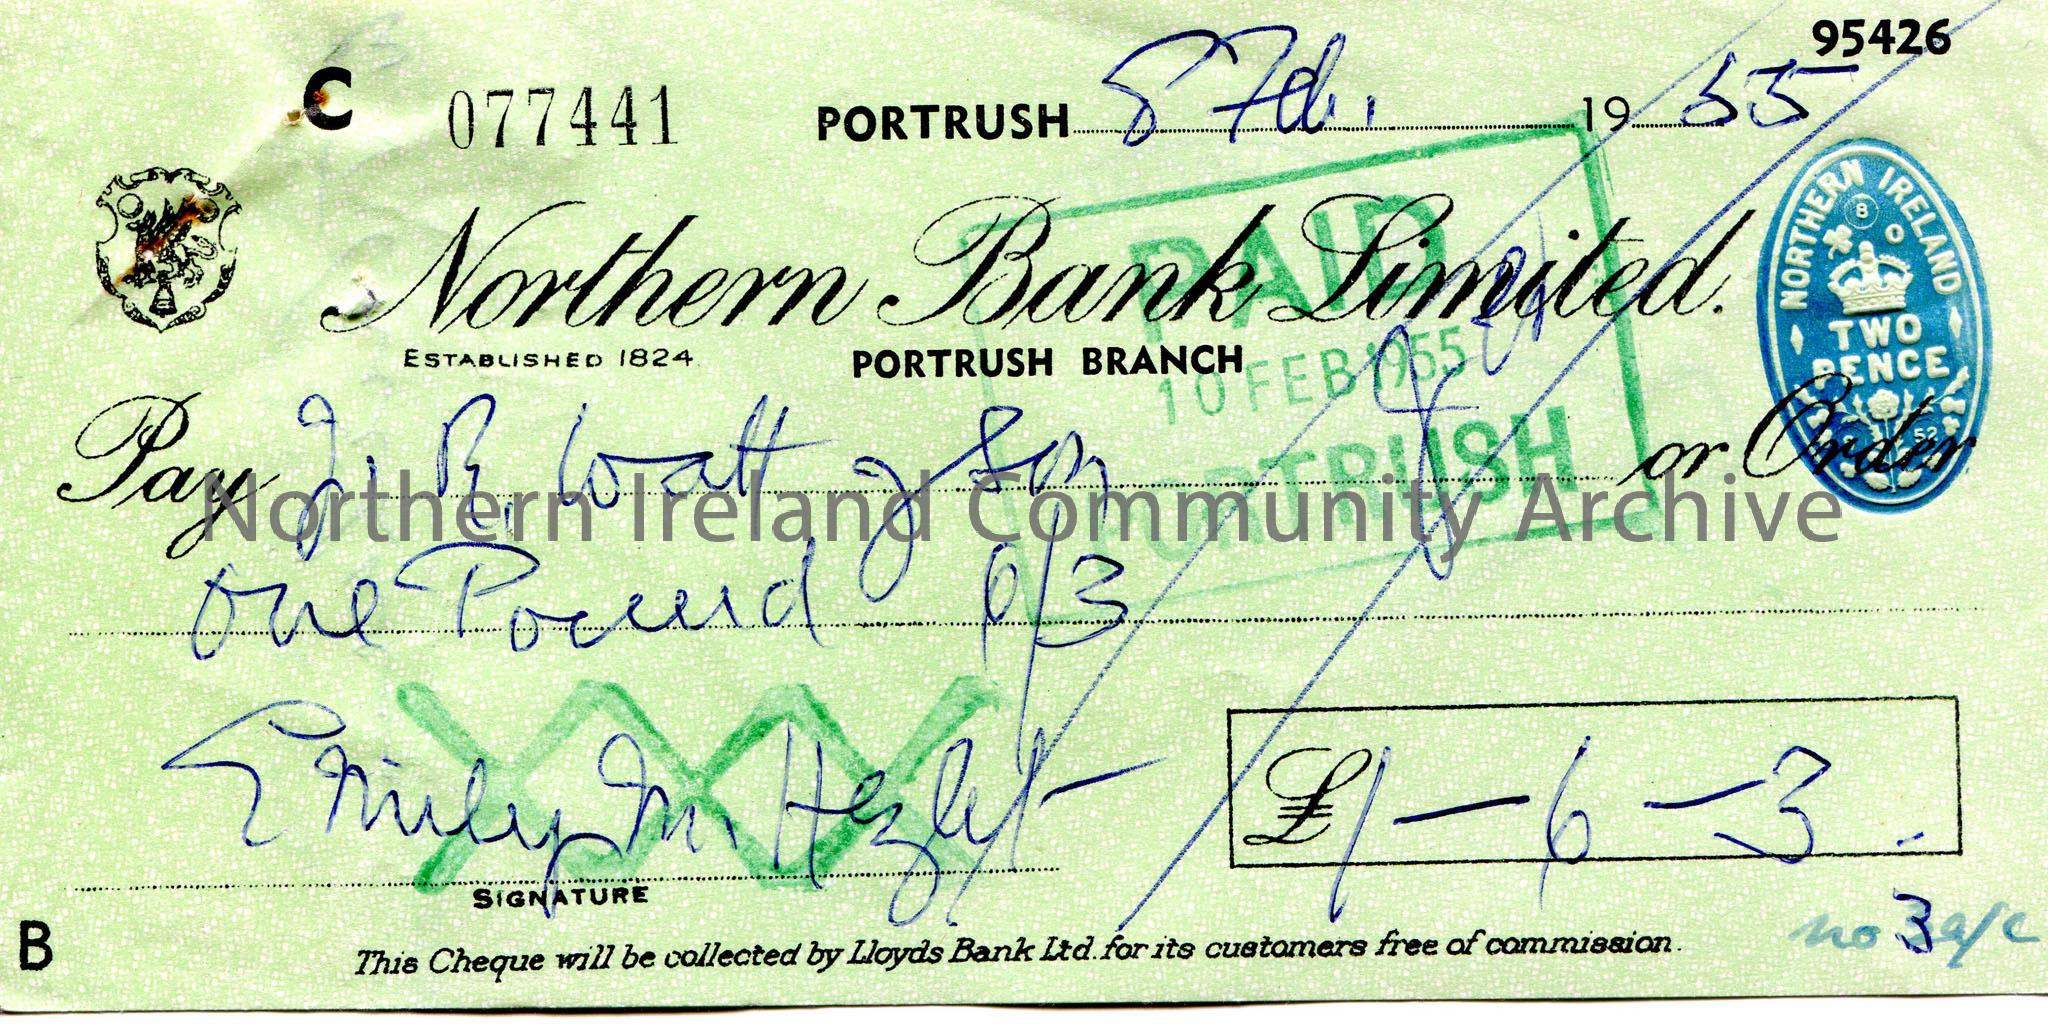 95426
C 077441 PORTRUSH 8 Feb. 19 55
NORTHERN IRELAND
8 0
TWO
PENCE
52
Northern Bank Limited.
ESTABLISHED 1824
PORTRUSH BRANCH
PAID
10 FEB 1955
PORTRUSH
Pay J. R. Watt & Son or Order
Northern Ireland Community Archive
One Pound 6/3
Emily M. Hezlet
£1-6-3
SIGNATURE
no 3 a/c
B
This Cheque will be collected by Lloyds Bank Ltd. for its customers free of commission.